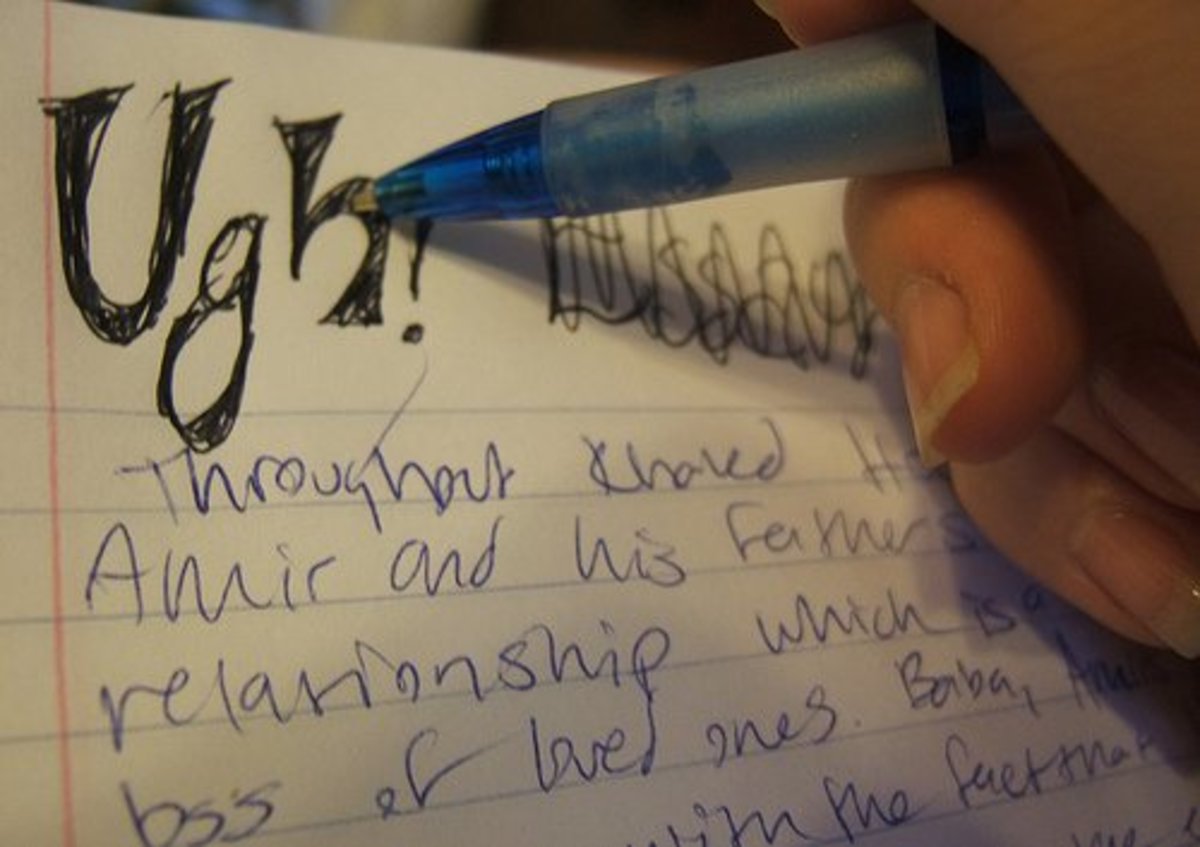 Ugh!
Throughout Khaled H
Amir and his Fathers
relationship which is a
loss of loved ones. Baba, Amir
with the fact that
me